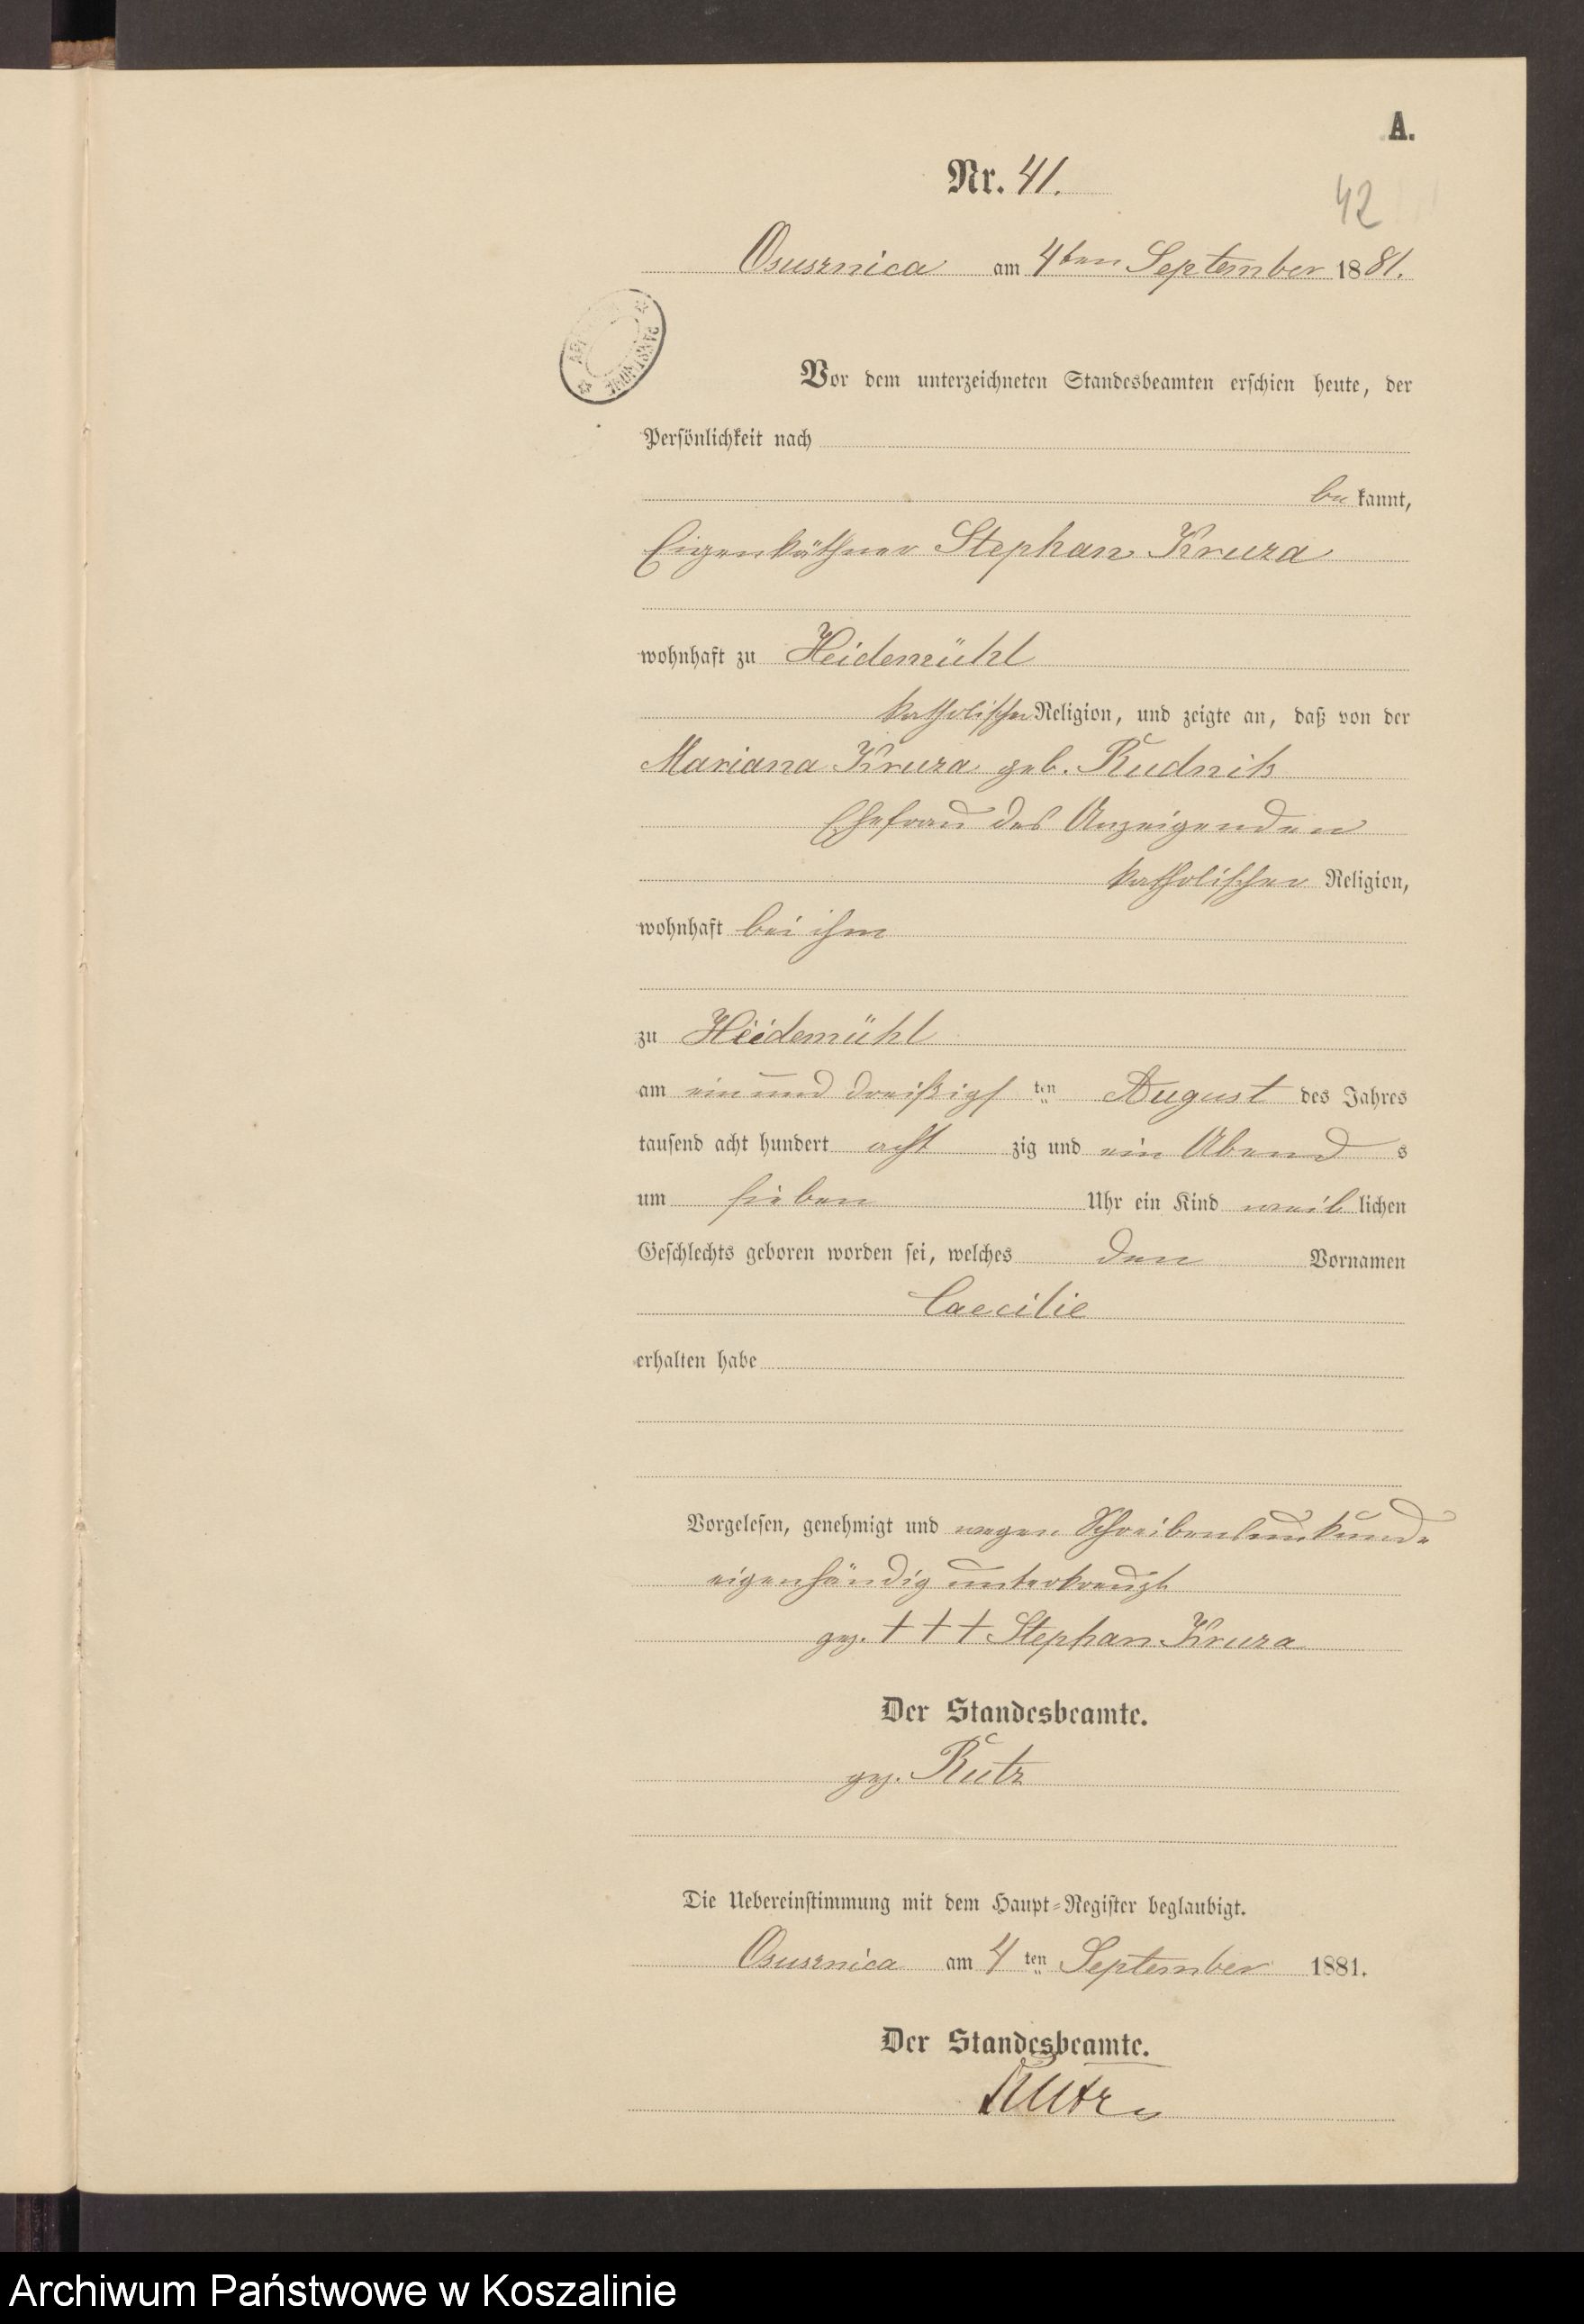 A.
Nr. 41.
42
Osusznica am 4ten September 1881.
Vor dem unterzeichneten Standesbeamten erschien heute, der
Persönlichkeit nach
bekannt,
Eigenkäthner Stephan Kruza
wohnhaft zu Heidemühl
katholischer Religion, und zeigte an, daß von der
Mariana Kruza geb. Rudnik
Ehefrau des Anzeigenden
katholischer Religion,
wohnhaft bei ihm
zu Heidemühl
am ein und dreißigsten August des Jahres
tausend acht hundert achtzig und ein Abends
um sieben Uhr ein Kind weiblichen
Geschlechts geboren worden sei, welches den Vornamen
Caecilie
erhalten habe
Vorgelesen, genehmigt und wegen Schreibensunkunde
eigenhändig unterkreuzt
gez. + + + Stephan Kruza
Der Standesbeamte.
gez. Rutz
Die Uebereinstimmung mit dem Haupt-Register beglaubigt.
Osusznica am 4ten September 1881.
Der Standesbeamte.
Rutz
Archiwum Państwowe w Koszalinie